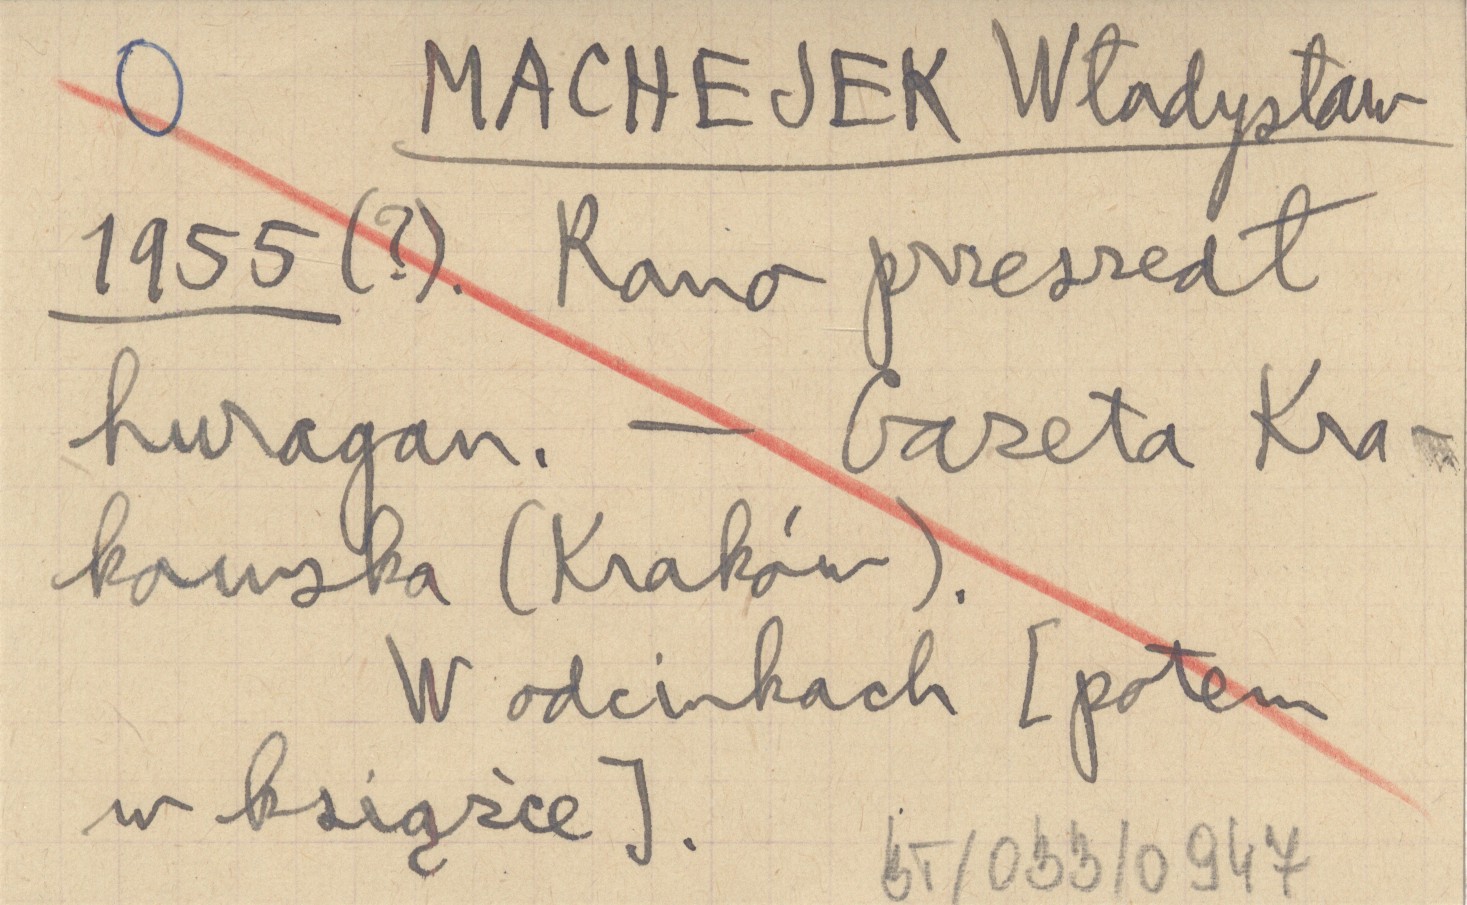 O MACHEJEK Władysław
1955 (?). Rano przeszedł
huragan. — Gazeta Kra-
kowska (Kraków).
W odcinkach [potem
w książce].
/033/0947